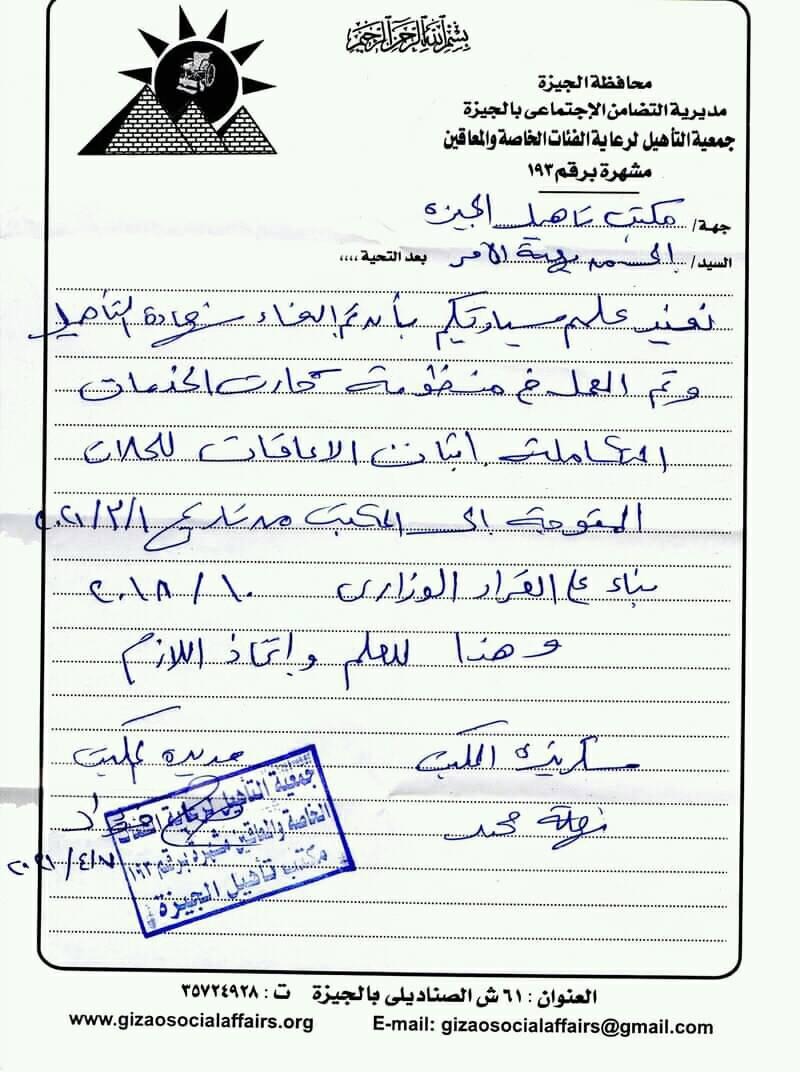 بسم الله الرحمن الرحيم
محافظة الجيزة
مديرية التضامن الإجتماعى بالجيزة
جمعية التأهيل لرعاية الفئات الخاصة والمعاقين
مشهرة برقم ١٩٣
جهة/ مكتب تأهيل الجيزة
السيد/ إلى من يهمه الأمر بعد التحية ،،،،
نفيد علم سيادتكم بأنه تم الغاء شهادة التأهيل
وتم العمل فى منظومة كارت الخدمات
المتكاملة إثبات الاعاقات للحالات
المتوجهة إلى المكتب من تاريخ ٢٠٢١/٣/١
بناء على القرار الوزارى ١٠ / ٢٠١٨
وهذا للعلم وإتخاذ اللازم
سكرتيرة المكتب مديرة المكتب
نهلة محمد
جمعية التأهيل لرعاية الفئات
الخاصة والمعاقين مشهرة برقم ١٩٣
مكتب تأهيل الجيزة
العنوان : ٦١ ش الصناديلى بالجيزة ت : ٣٥٧٢٤٩٢٨
www.gizaosocialaffairs.org E-mail: gizaosocialaffairs@gmail.com